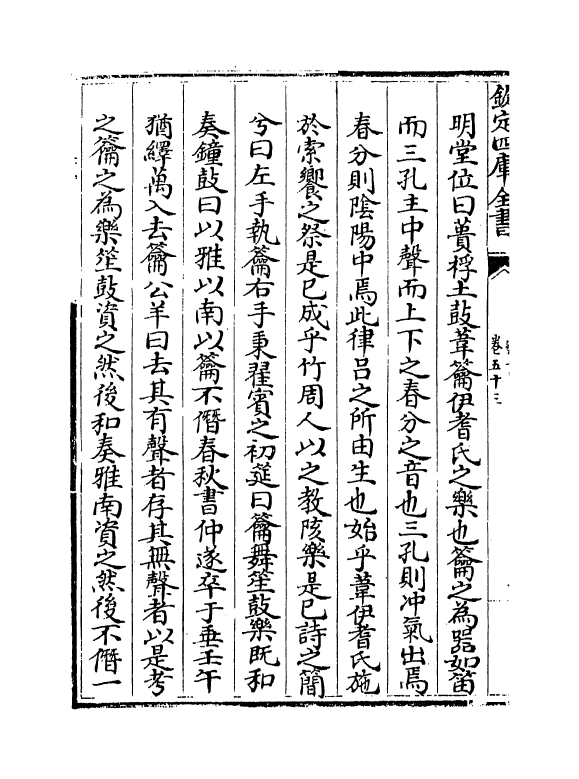 欽定四庫全書
卷五十三
明堂位曰蕢桴土鼓葦籥伊耆氏之樂也籥之為器如笛
而三孔主中聲而上下之春分之音也三孔則冲氣出焉
春分則陰陽中焉此律呂之所由生也始乎葦伊耆氏施
於索饗之祭是已成乎竹周人以之教陔樂是已詩之簡
兮曰左手執籥右手秉翟賓之初筵曰籥舞笙鼓樂既和
奏鐘鼓曰以雅以南以籥不僭春秋書仲遂卒于垂壬午
猶繹萬入去籥公羊曰去其有聲者存其無聲者以是考
之籥之為樂笙鼓資之然後和奏雅南資之然後不僭一